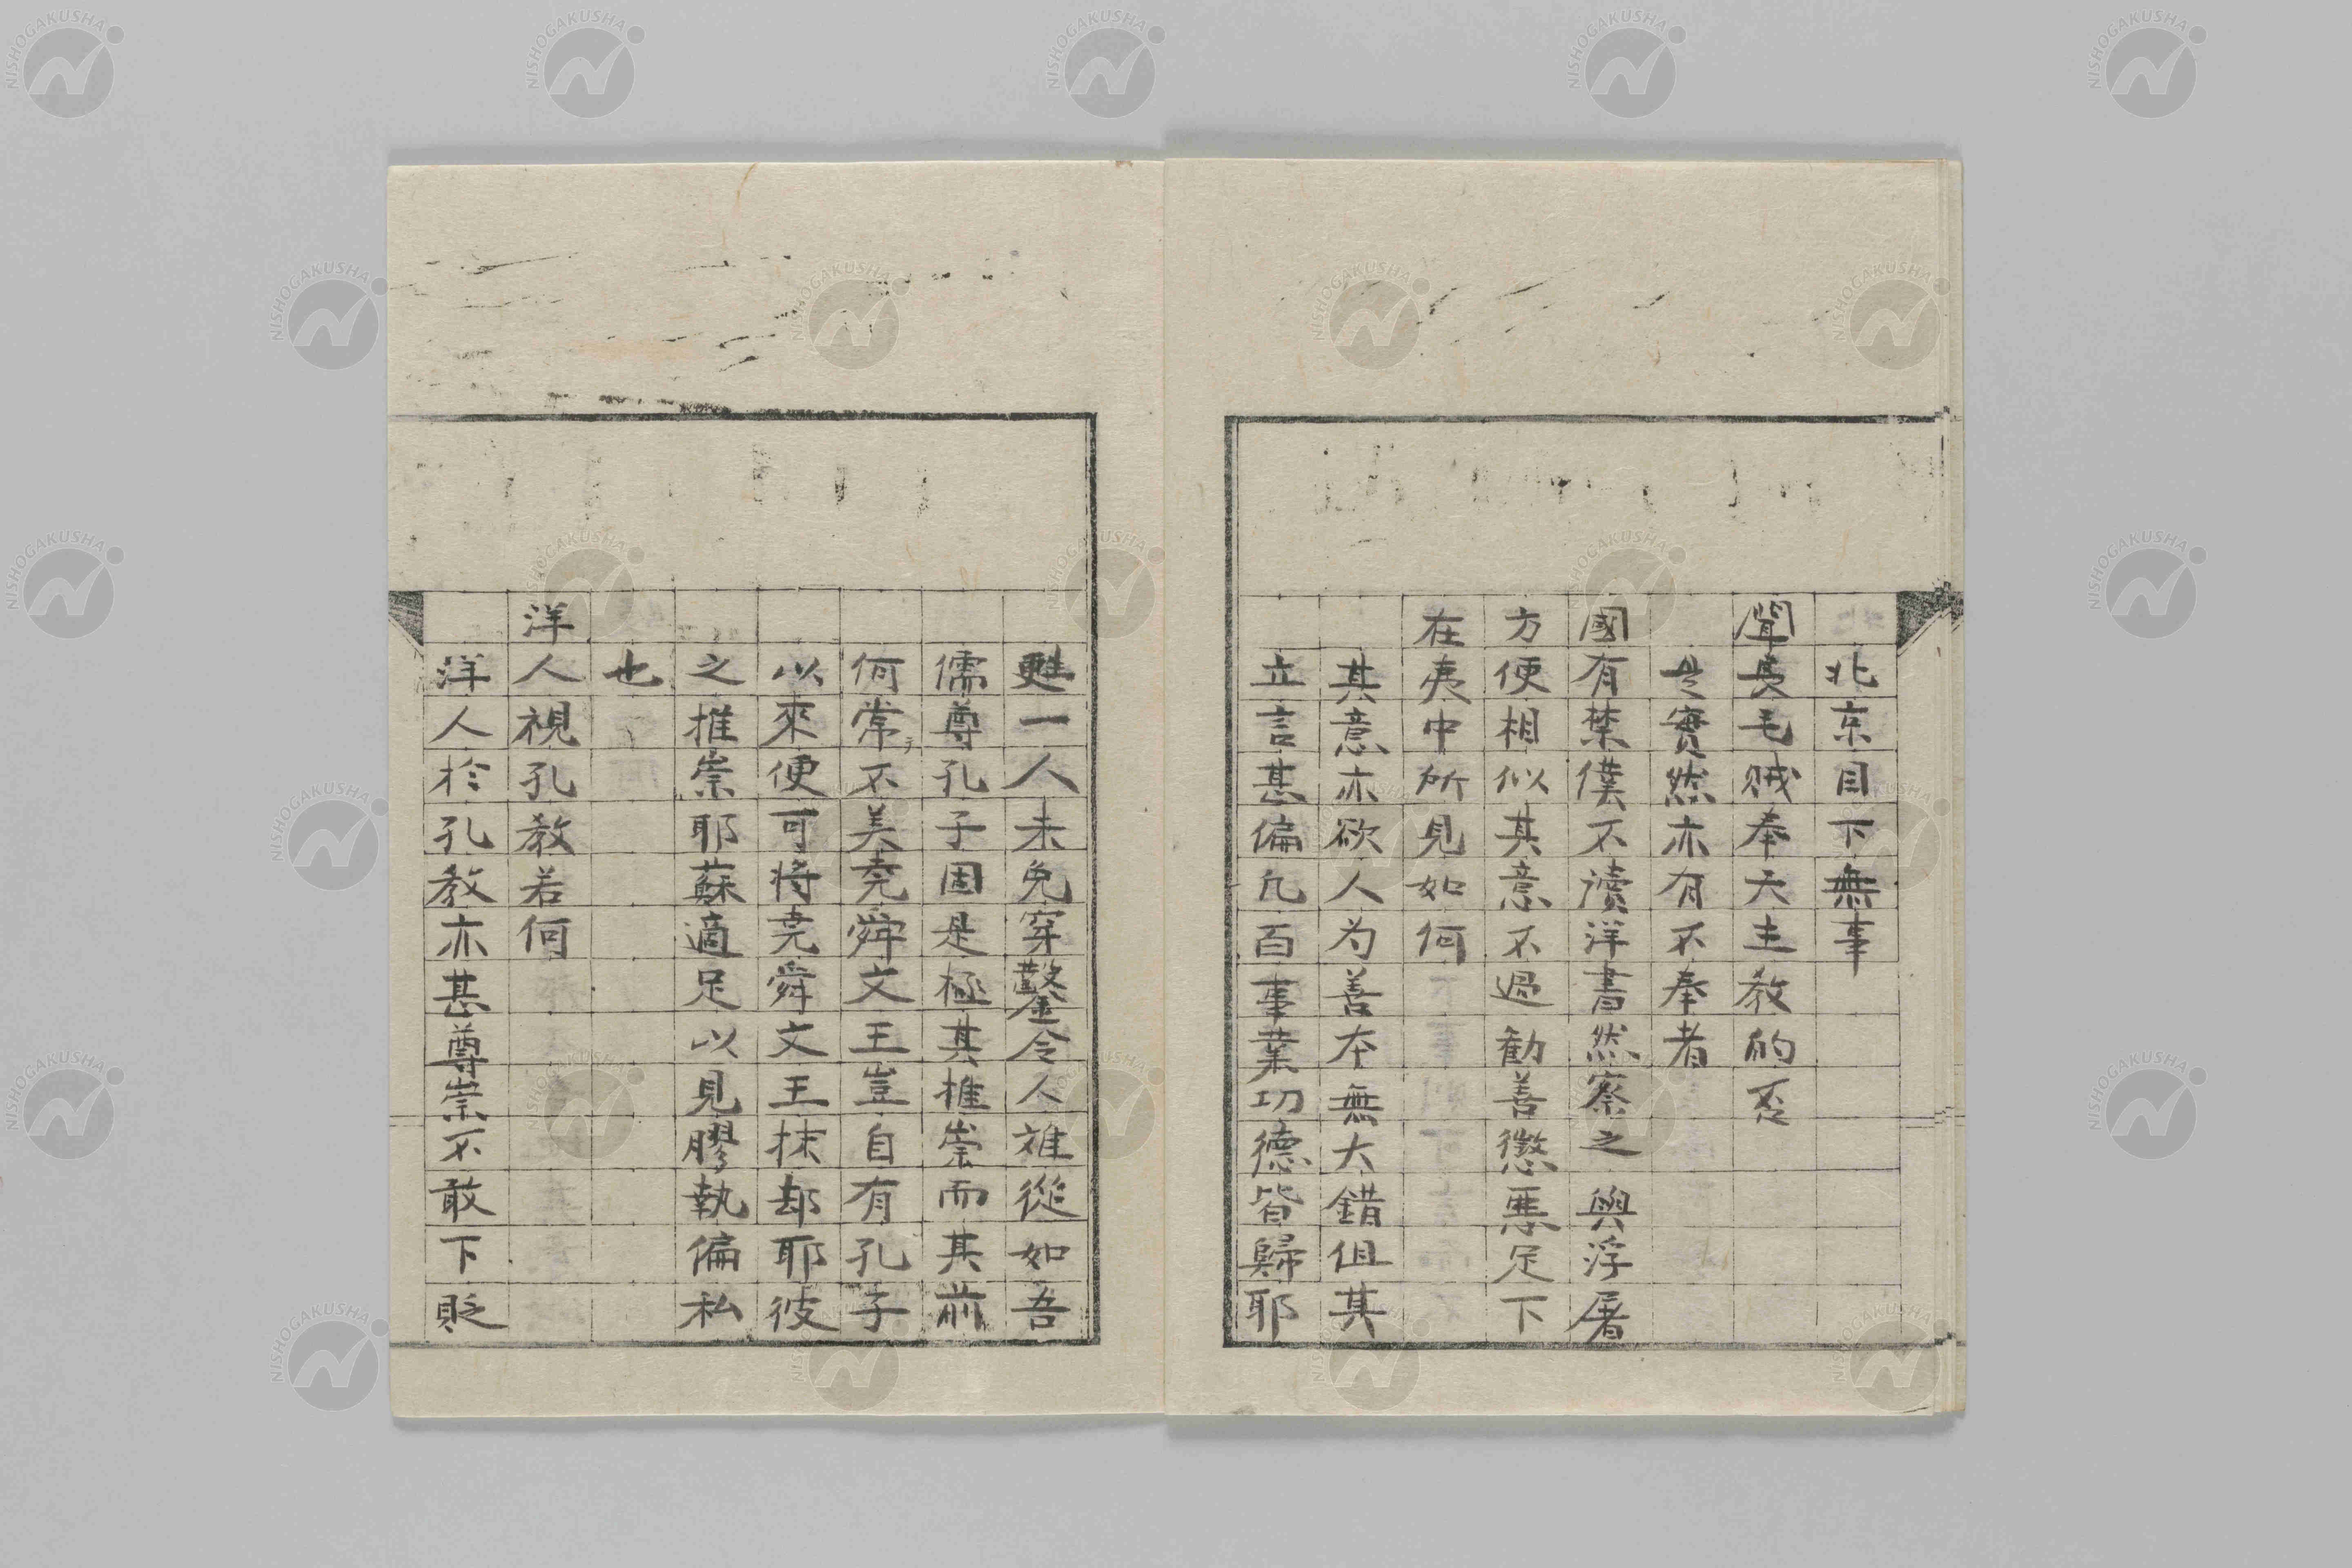 北京目下無事
聞長毛賊奉天主教的否
是實然亦有不奉者
國有禁僕不讀洋書然察之與浮屠
方便相似其意不過勸善懲悪足下
在夷中所見如何
其意亦欲人为善本無大錯但其
立言甚偏凡百事業功德皆歸耶
甦一人未免穿鑿令人難從如吾
儒尊孔子固是極其推崇而其前
何常不美堯舜文王豈自有孔子
以來便可將堯舜文王抹却耶彼
之推崇耶蘇適足以見膠執偏私
也
洋人視孔教若何
洋人於孔教亦甚尊崇不敢下貶
NISHOGAKUSHA